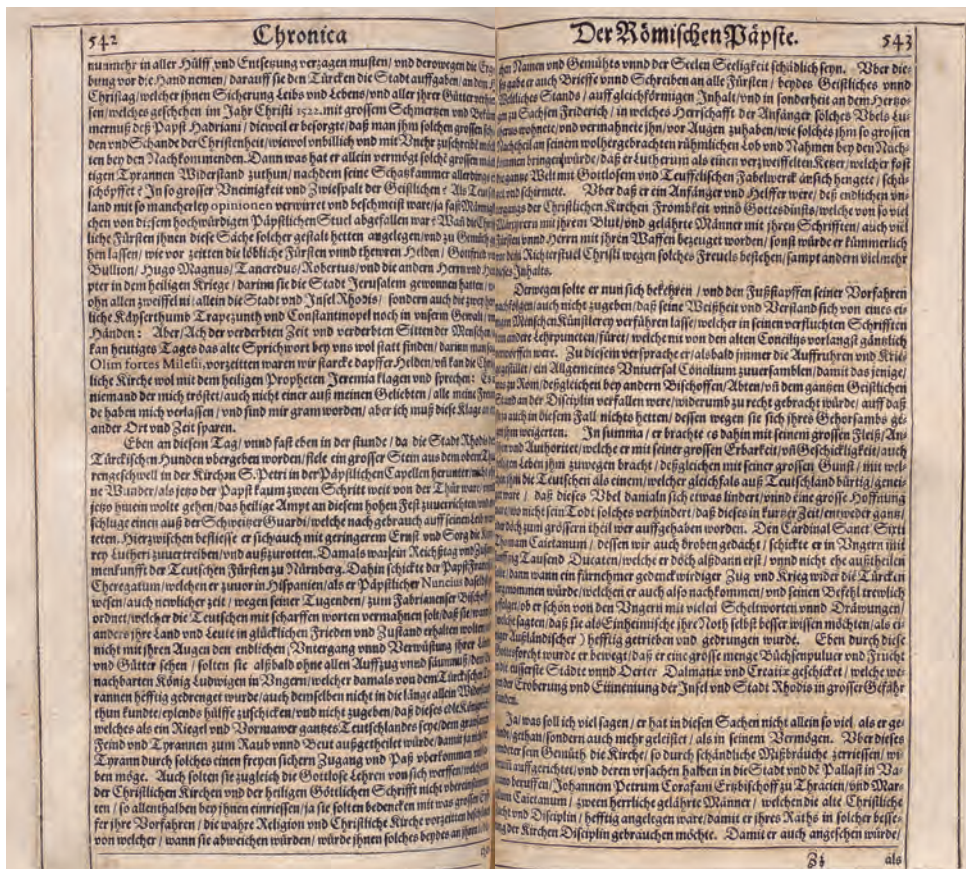 542 Chronica
nunmehr in aller Hülff vnd Entsetzung verzagen musten/ vnd derowegen die
bung vor die Hand nemen/ darauff sie den Türcken die Stadt auffgaben/ an dem
Christag/ welcher jhnen Sicherung Leibs vnd Lebens/ vnd aller jhrer Gütter
sen/ welches geschehen im Jahr Christi 1522. mit grossem Schmertzen vnd
mernuß deß Papst Hadriani/ dieweil er besorgte/ daß man jhm solchen grossen
den vnd Schande der Christenheit/ wiewol vnbillich vnd mit Vnehr zuschreiben
ten bey den Nachkommenden. Dann was hat er allein vermögt solche grossen
tigen Tyrannen Widerstand zuthun/ nachdem seine Schatzkammer allerdings
schöpffet? In so grosser Vneinigkeit vnd Zwiespalt der Geistlichen? Als
land mit so mancherley opinionen verwirret vnd beschmeist ware/ ja saß
chen von diesem hochwürdigen Päpstlichen Stuel abgefallen war? Waß die
liche Fürsten jhnen diese Sache solcher gestalt hetten angelegen/ vnd zu
hen lassen/ wie vor zeitten die löbliche Fürsten vnnd thewren Helden/
Bullion/ Hugo Magnus/ Tancredus/ Robertus/ vnd die andern Herrn vnd
pter in dem heiligen Kriege/ darinn sie die Stadt Jerusalem gewonnen hatten/
ohn allen zweiffel ni/ allein die Stadt vnd Insel Rhodis/ sondern auch die zwey
liche Käyserthumb Trapezunth vnd Constantinopel noch in vnserm Gewalt/
Händen: Aber/ Ach der verderbten Zeit vnd verderbten Sitten der Menschen
kan heutiges Tages das alte Sprichwort bey vns wol statt finden/ darinn man
Olim fortes Milesii, vorzeitten waren wir starcke dapffer Helden/ vñ kan die
liche Kirche wol mit dem heiligen Propheten Jeremia klagen vnd sprechen:
niemand der mich tröstet/ auch nicht einer auß meinen Geliebten/ alle meine
de haben mich verlassen/ vnd sind mir gram worden/ aber ich muß diese Klage
ander Ort vnd Zeit sparen.
Eben an diesem Tag/ vnnd fast eben in der stunde/ da die Stadt Rhodis
Türckischen Hunden vbergeben worden/ fiele ein grosser Stein aus dem obern
rengeschwell in der Kirchen S. Petri in der Päpstlichen Capellen herunter/
ne Wunder/ als jetzo der Papst kaum zween Schritt weit von der Thür ware/
jetzo hinein wolte gehen/ das heilige Ampt an diesem hohen Fest zuverrichten/
schluge einen auß der Schweitzer Guardi/ welche nach gebrauch auff seinen
teten. Hierzwischen beflisse er sich auch mit geringerem Ernst vnd Sorg die
rey Lutheri zuuertreiben/ vnd außzurotten. Damals war ein Reichßtag vnd
menkunfft der Teutschen Fürsten zu Nürnberg. Dahin schickte der Papst
Cheregatum/ welchen er zuuor in Hispanien/ als er Päpstlicher Nuncius
wesen/ auch newlicher zeit/ wegen seiner Tugenden/ zum Fabrianenser
ordnet/ welcher die Teutschen mit scharffen worten vermahnen solt/ daß sie/
anders jhre Land vnd Leute in glücklichen Frieden vnd Zustand erhalten wolten
nicht mit jhren Augen den endlichen/ Vntergang vnnd Verwüstung jhrer
vnd Gütter sehen/ solten sie alßbald ohne allen Auffzug vnnd säumnuß/
nachbarten König Ludwigen in Vngern/ welcher damals von dem Türckischen
rannen hefftig gedrenget wurde/ auch demselben nicht in die länge allein
thun kundte/ eylends hülffe zuschicken/ vnd nicht zugeben/ daß dieses edle
welches als ein Riegel vnd Vormawer gantzes Teutschlandes seye/ dem
Feind vnd Tyrannen zum Raub vnnd Beut außgetheilet würde/ damit
Tyrann durch solches einen freyen sichern Zugang vnd Paß vberkommen
ben möge. Auch solten sie zugleich die Gottlose Lehren von sich werffen/
der Christlichen Kirchen vnd der heiligen Göttlichen Schrifft nicht
ten/ so allenthalben bey jhnen einriessen/ ja sie solten bedencken mit was grossem
fer jhre Vorfahren/ die wahre Religion vnd Christliche Kirche vorzeitten
von welcher/ wann sie abweichen würden/ würde jhnen solches beydes an jhren
Der Römischen Päpste. 543
Namen vnd Gemühts vnnd der Seelen Seeligkeit schädlich seyn. Vber die
gabe er auch Brieffe vnnd Schreiben an alle Fürsten/ beydes Geistliches vnnd
Weltliches Stands/ auff gleichförmigen Inhalt/ vnd in sonderheit an dem Hertzo-
zu Sachsen Friderich/ in welches Herrschafft der Anfänger solches Vbels Lu-
wohnete/ vnd vermahnete jhn/ vor Augen zuhaben/ wie solches jhm so grossen
Nachtheil an seinem wolhergebrachten rühmlichen Lob vnd Nahmen bey den Nach-
bringen würde/ daß er Lutherum als einen verzweiffelten Ketzer/ welcher fast
die gantze Welt mit Gottlosem vnd Teuffelischen Fabelwerck an sich hengete/ schü-
vnd schirmete. Vber daß er ein Anfänger vnd Helffer were/ deß endlichen vn-
der Christlichen Kirchen Frombkeit vnnd Gottesdinsts/ welche von so viel
mit jhrem Blut/ vnd gelährte Männer mit jhren Schrifften/ auch viel
Fürsten vnnd Herrn mit jhren Waffen bezeuget worden/ sonst würde er kümmerlich
dem Richterstuel Christi wegen solches Freuels bestehen/ sampt andern viel mehr
dieses Inhalts.
Derwegen solte er nun sich bekehren/ vnd den Fußstapffen seiner Vorfahren
nachfolgen/ auch nicht zugeben/ daß seine Weißheit vnd Verstand sich von eines ei-
Menschen Künstlerey verführen lasse/ welcher in seinen verfluchten Schrifften
andere Lehrpuncten/ füret/ welche mit von den alten Conciliis vorlangst gäntzlich
verworffen were. Zu diesem versprache er/ alsbald jmmer die Auffruhren vnd Krie-
gestillet/ ein Allgemeines Vniversal Concilium zuuersamblen/ damit das jenige/
zu Rom/ deßgleichen bey andern Bischoffen/ Abten/ vñ dem gantzen Geistlichen
Stand an der Disciplin verfallen were/ widerumb zu recht gebracht würde/ auff daß
auch in diesem Fall nichts hetten/ dessen wegen sie sich jhres Gehorsambs ge-
jhm weigerten. In summa/ er brachte es dahin mit seinem grossen Fleiß/ An-
vnd Authoritet/ welche er mit seiner grossen Erbarkeit/ vñ Geschickligkeit/ auch
Leben jhm zuwegen bracht/ deßgleichen mit seiner grossen Gunst/ mit wel-
jhm die Teutschen als einem/ welcher gleichfals auß Teutschland bürtig/ geneig
ware/ daß dieses Vbel damaln sich etwas lindert/ vnnd eine grosse Hoffnung
wo nicht sein Todt solches verhindert/ daß dieses in kurtzer Zeit/ entweder gantz/
doch zum grössern theil wer auffgehaben worden. Den Cardinal Sanct Sixti
Thomam Caietanum/ dessen wir auch droben gedacht/ schickte er in Vngern mit
Tausend Ducaten/ welche er doch alßdann erst/ vnnd nicht ehe außtheilen
dann wann ein fürnehmer gedenckwirdiger Zug vnd Krieg wider die Türcken
würde/ welchen er auch also nachkommen/ vnd seinen Befehl trewlich
ob er schon von den Vngern mit vielen Scheltworten vnnd Dräwungen/
sagten/ daß sie als Einheimische jhre Noth selbst besser wissen möchten/ als ei-
Außländischer) hefftig getrieben vnd gedrungen wurde. Eben durch diese
Gottesforcht wurde er bewegt/ daß er eine grosse menge Büchsenpuluer vnd Frücht
die eusserste Städte vnnd Oerter Dalmatiæ vnd Creatiæ geschicket/ welche we-
der Eroberung vnd Einnemung der Insel vnd Stadt Rhodis in grosser Gefahr
Ja/ was soll ich viel sagen/ er hat in diesen Sachen nicht allein so viel als er ge-
gethan/ sondern auch mehr geleistet/ als in seinem Vermögen. Vber dieses
sein Gemüth die Kirche/ so durch schändliche Mißbräuche zerrissen/ wi-
auffgerichtet/ vnd deren vrsachen halben in die Stadt vnd dē Pallast in Va-
beruffen/ Johannem Petrum Corafani Ertzbischoff zu Thracien/ vnd Mar-
Caietanum/ zween herrliche gelährte Männer/ welchen die alte Christliche
vnd Disciplin/ hefftig angelegen ware/ damit er jhres Raths in solcher besse-
der Kirchen Disciplin gebrauchen möchte. Damit er auch angesehen würde/
als